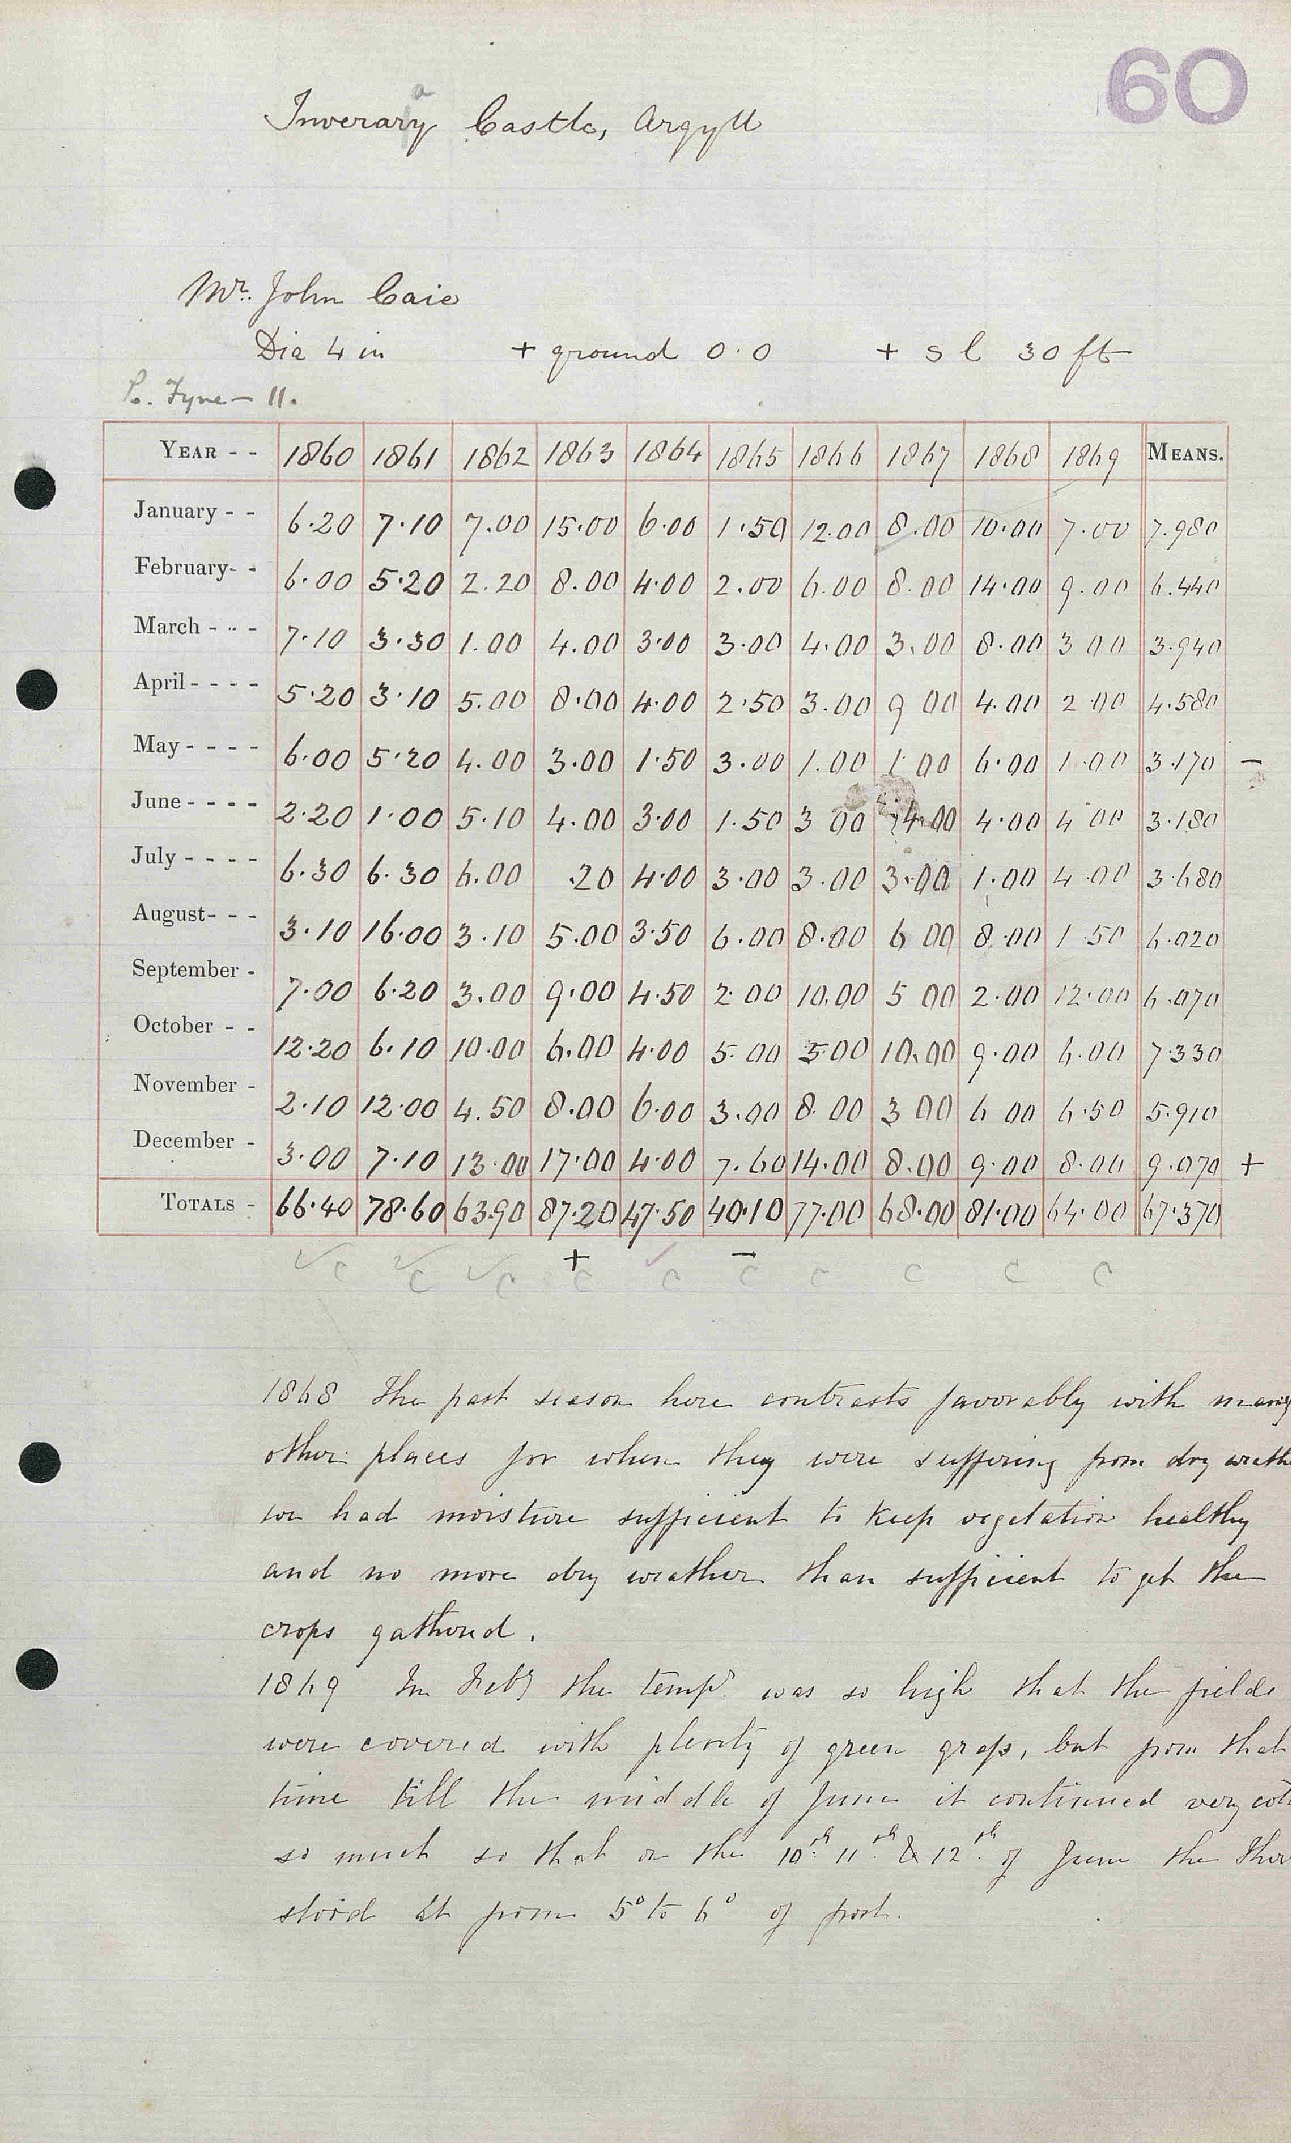 60
a
Inverary Castle, Argyll
Mr. John Caie
Dia 4 in + ground 0.0 + s l 30 ft
L. Fyne - 11.
YEAR - - 1860 1861 1862 1863 1864 1865 1866 1867 1868 1869 MEANS.
January - - 6.20 7.10 7.00 15.00 6.00 1.50 12.00 8.00 10.00 7.00 7.980
February- - 6.00 5.20 2.20 8.00 4.00 2.00 6.00 8.00 14.00 9.00 6.440
March - - - 7.10 3.30 1.00 4.00 3.00 3.00 4.00 3.00 8.00 3 00 3.940
April - - - - 5.20 3.10 5.00 8.00 4.00 2.50 3.00 9 00 4.00 2 00 4.580
May - - - - 6.00 5.20 4.00 3.00 1.50 3.00 1.00 1.00 6.00 1.00 3.170 -
June - - - - 2.20 1.00 5.10 4.00 3.00 1.50 3 00 4.00 4.00 4 00 3.180
July - - - - 6.30 6.30 6.00 .20 4.00 3.00 3.00 3.00 1.00 4.00 3.680
August- - - 3.10 16.00 3.10 5.00 3.50 6.00 8.00 6 00 8.00 1 50 6.020
September - 7.00 6.20 3.00 9.00 4.50 2 00 10.00 5 00 2.00 12.00 6.070
October - - 12.20 6.10 10.00 6.00 4.00 5.00 5.00 10.00 9.00 6.00 7.330
November - 2.10 12.00 4.50 8.00 6.00 3.00 8 00 3 00 6 00 6.50 5.910
December - 3.00 7.10 13.00 17.00 4.00 7.60 14.00 8.00 9.00 8.00 9.070 +
TOTALS - 66.40 78.60 63.90 87.20 47.50 40.10 77.00 68.00 81.00 64.00 67.370
+ -
c c c c c c c c c c
1868 The past season here contrasts favorably with many
other places for when they were suffering from dry weathe
we had moisture sufficient to keep vegetation healthy
and no more dry weather than sufficient to get the
crops gathered.
1869 In Feby the tempr was so high that the fields
were covered with plenty of green grass, but from that
time till the middle of June it continued very col
so much so that on the 10th 11th & 12th of June the Ther
stood at from 5° to 6° of frost.